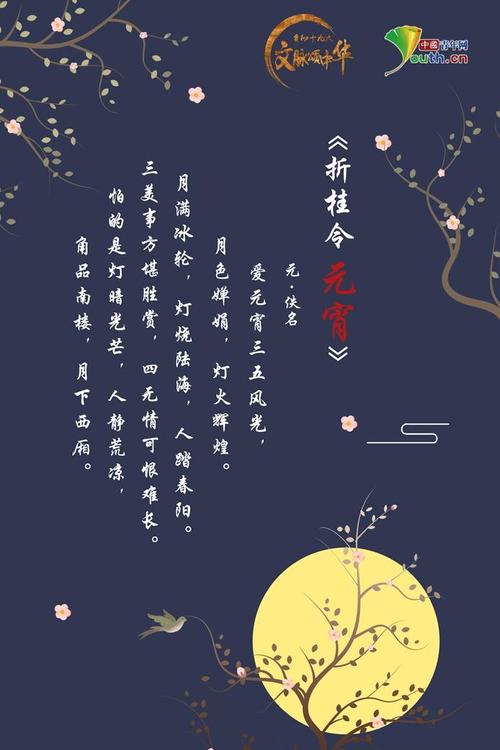 文脉颂中华
中國青年网
Youth.cn
《折桂令 元宵》
元·佚名
爱元宵三五风光，
月色婵娟，灯火辉煌。
月满冰轮，灯烧陆海，人踏春阳。
三美事方堪胜赏，四无情可恨难长。
怕的是灯暗光芒，人静荒凉，
角品南楼，月下西厢。